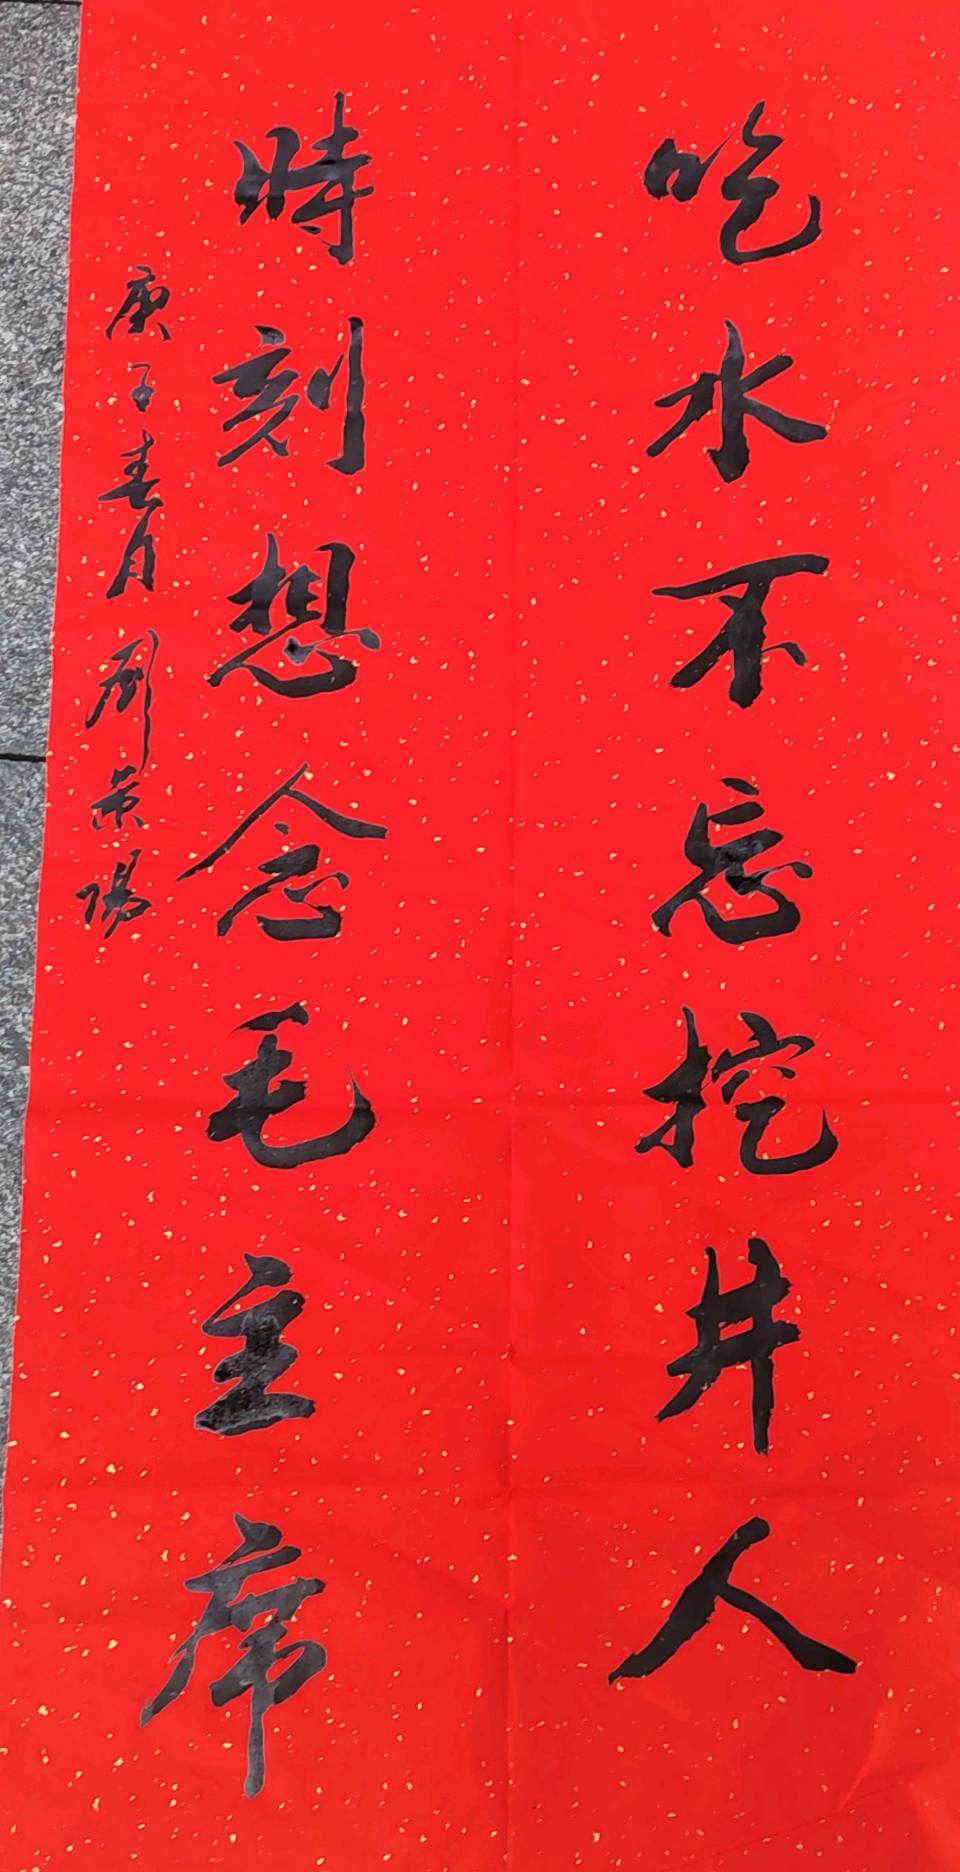 吃水不忘挖井人
時刻想念毛主席
庚子春月周景陽